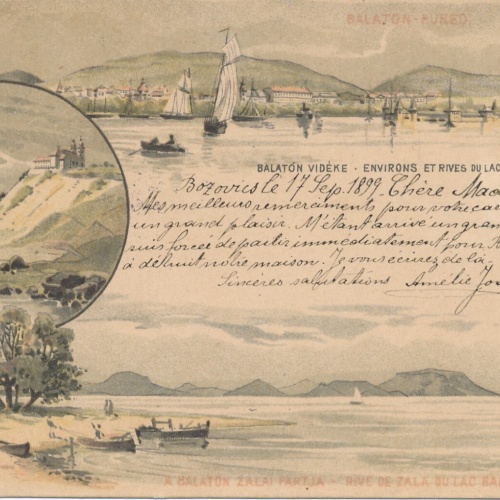 BALATON-FÜRED.
BALATON VIDÉKE - ENVIRONS ET RIVES DU LAC
Bozovics le 17 Sep. 1899. Chère Mad
Mes meilleurs remerciments pour votre ca
un grand plaisir. M'étant arrivé un gran
suis forcée de partir immédiatement pour
à détruit notre maison. Je vous écrirez de là.
Sincères salutations Amélie Jos
A BALATON ZALAI PARTJA - RIVE DE ZALA DU LAC BA